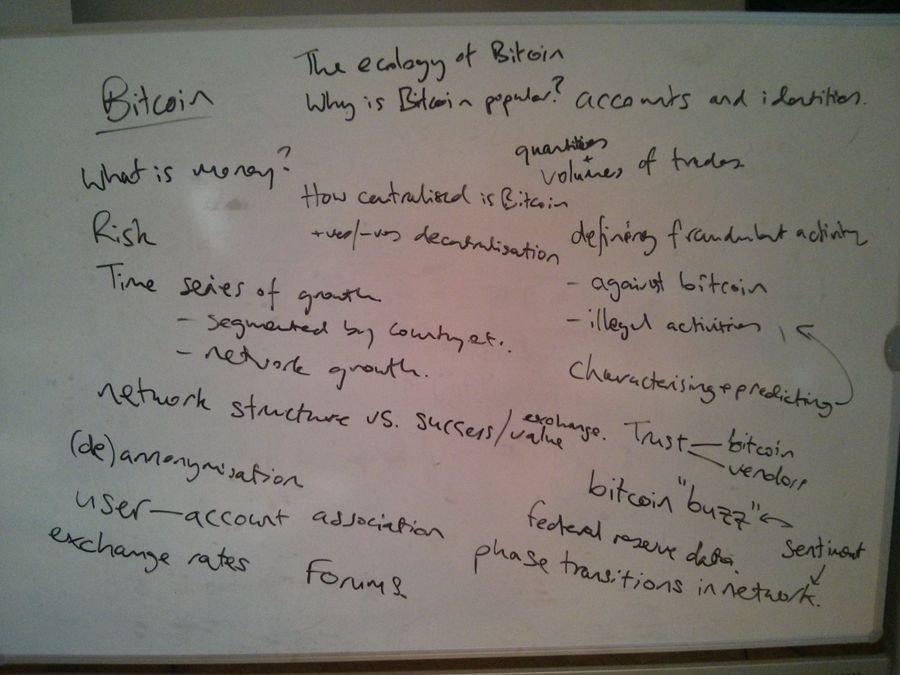 The ecology of Bitcoin
Bitcoin
Why is Bitcoin popular? accounts and identities.
What is money?
quantities
+
volumes of trades
How centralised is Bitcoin
+ves/-ves decentralisation
Risk
defining fraudulent activity
- against bitcoin
- illegal activities
characterising + predicting
Time series of growth
- segmented by country et..
- network growth.
network structure vs. success/value
exchange.
Trust
bitcoin
vendors
(de)annonymisation
bitcoin "buzz"
user-account association
federal reserve data.
sentiment
exchange rates
Forums
phase transitions in network.